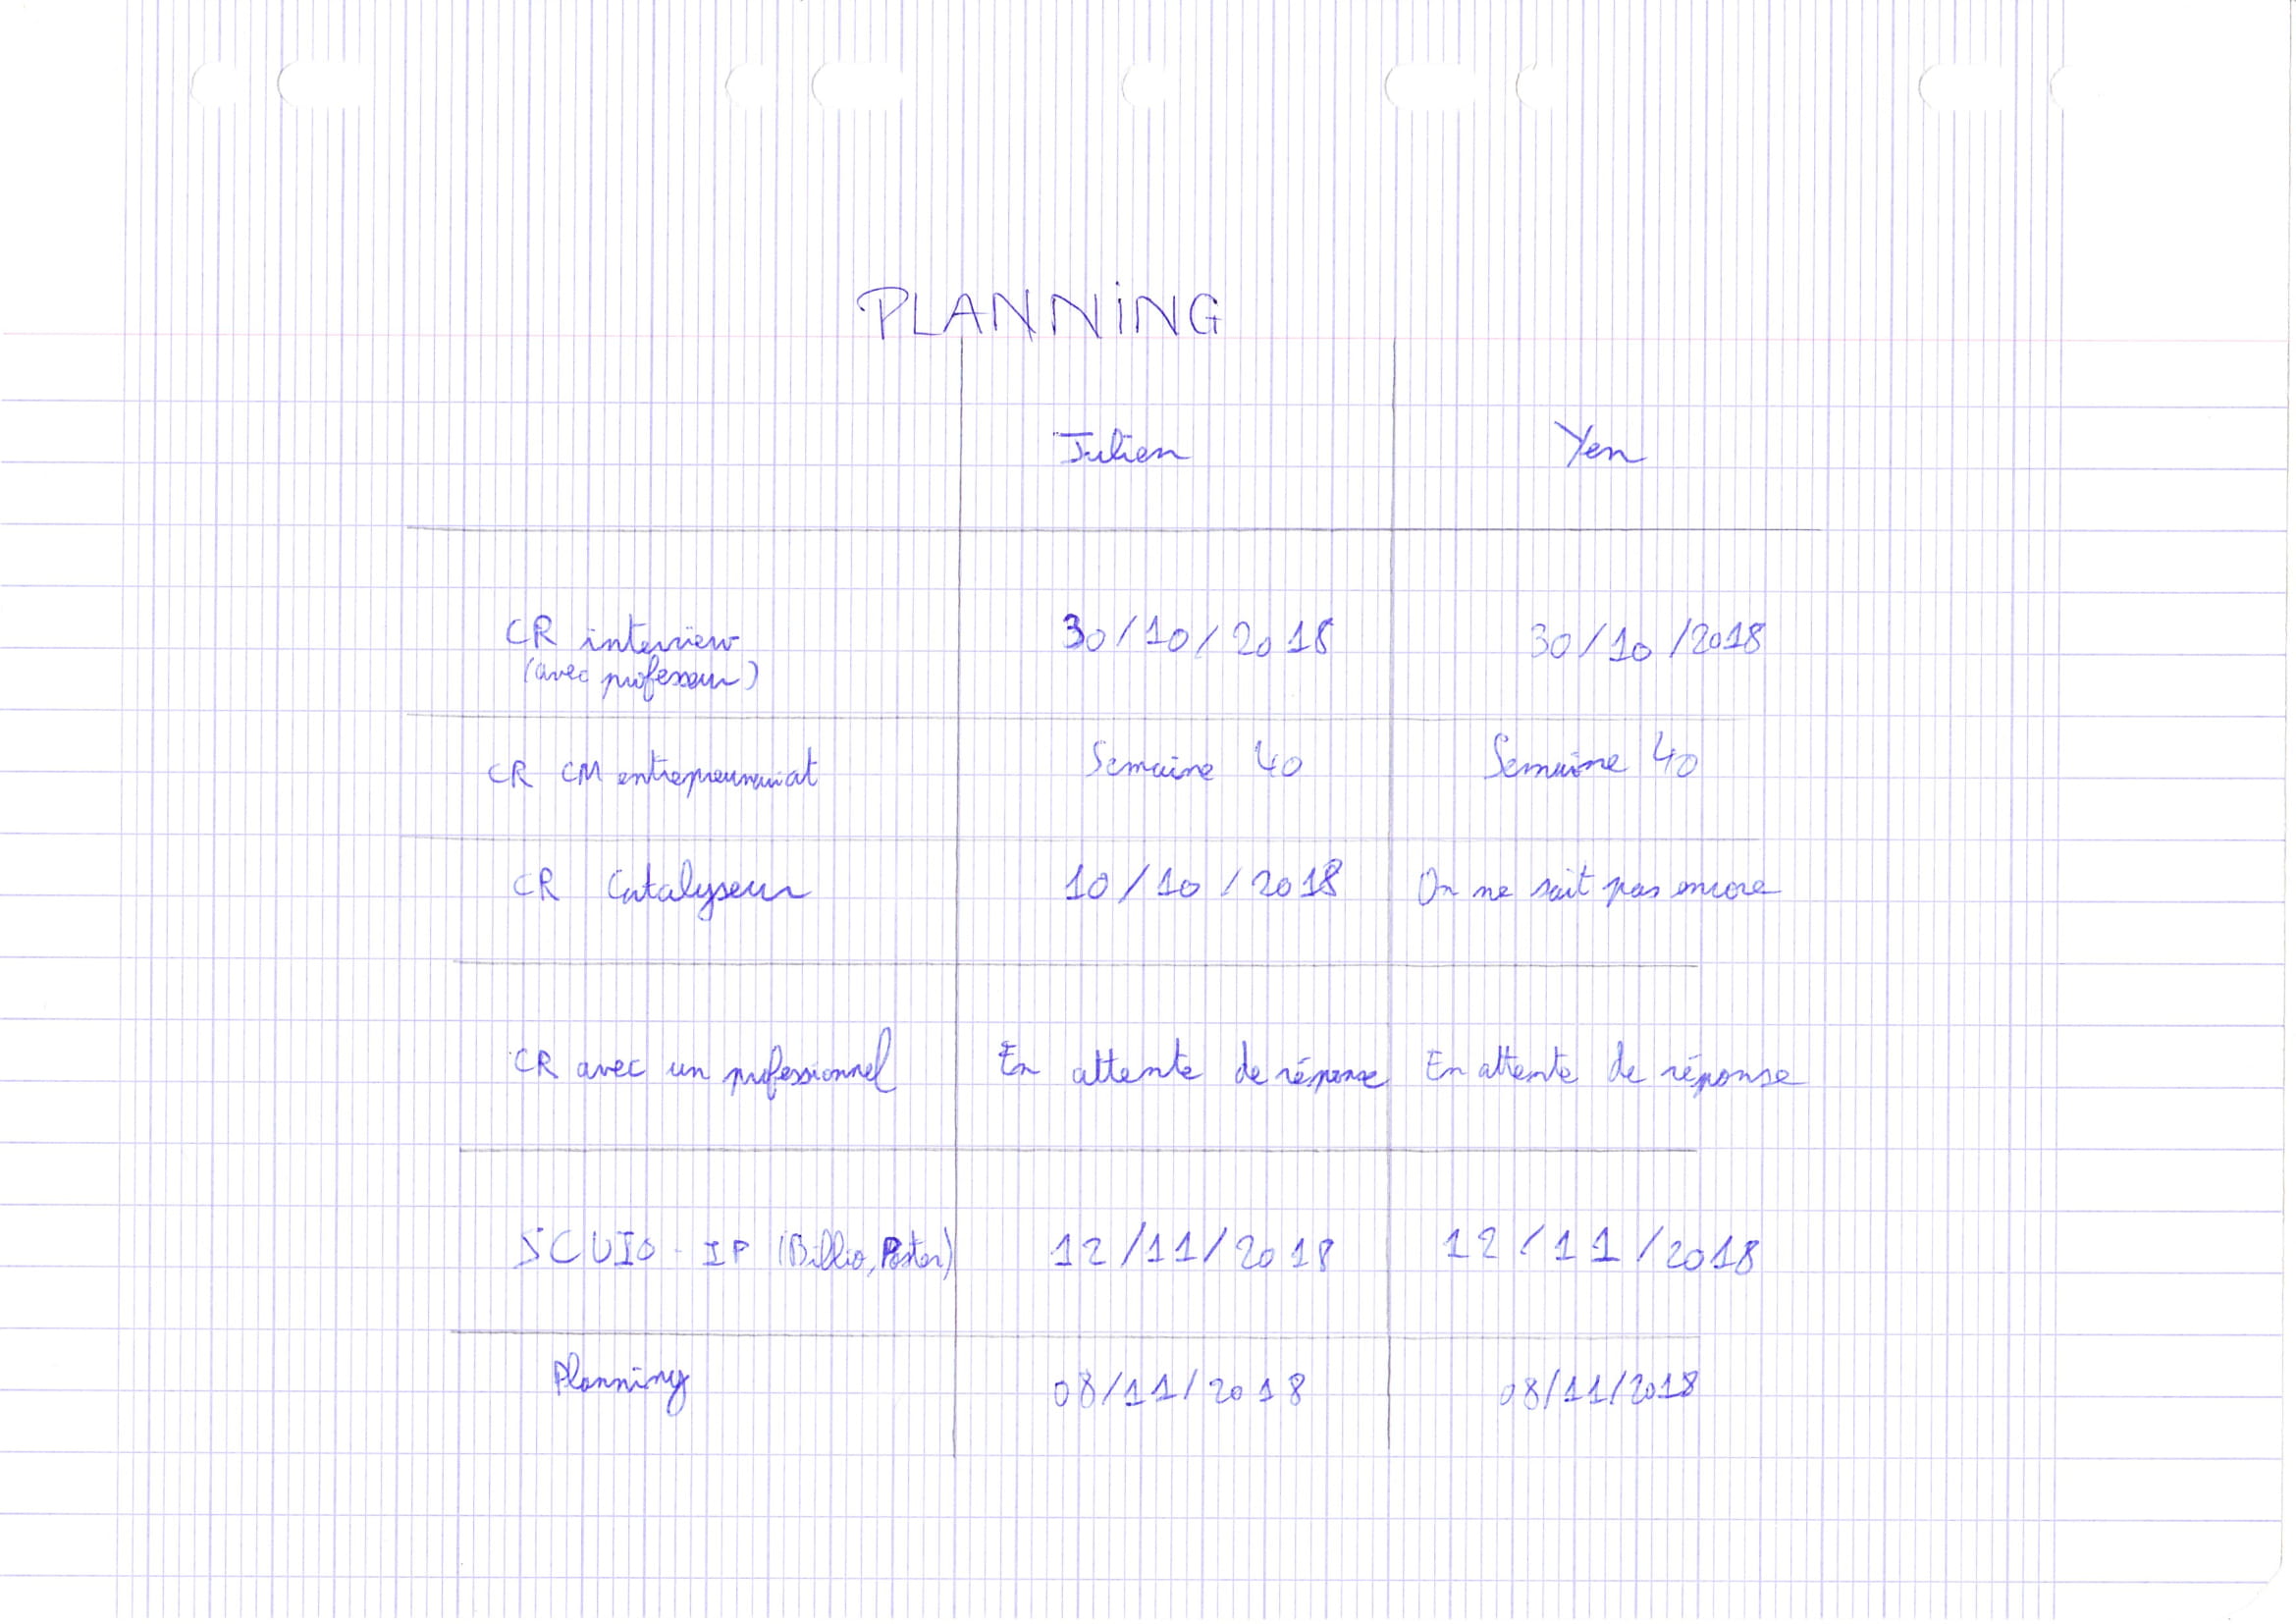 PLANNING
Julien Yen
CR interview 30/10/2018 30/10/2018
(avec professeur)
CR CM entrepreunariat Semaine 40 Semaine 40
CR Catalyseur 10/10/2018 On ne sait pas encore
CR avec un professionnel En attente de réponse En attente de réponse
SCUIO-IP (Biblio, Poster) 12/11/2018 12/11/2018
Planning 08/11/2018 08/11/2018